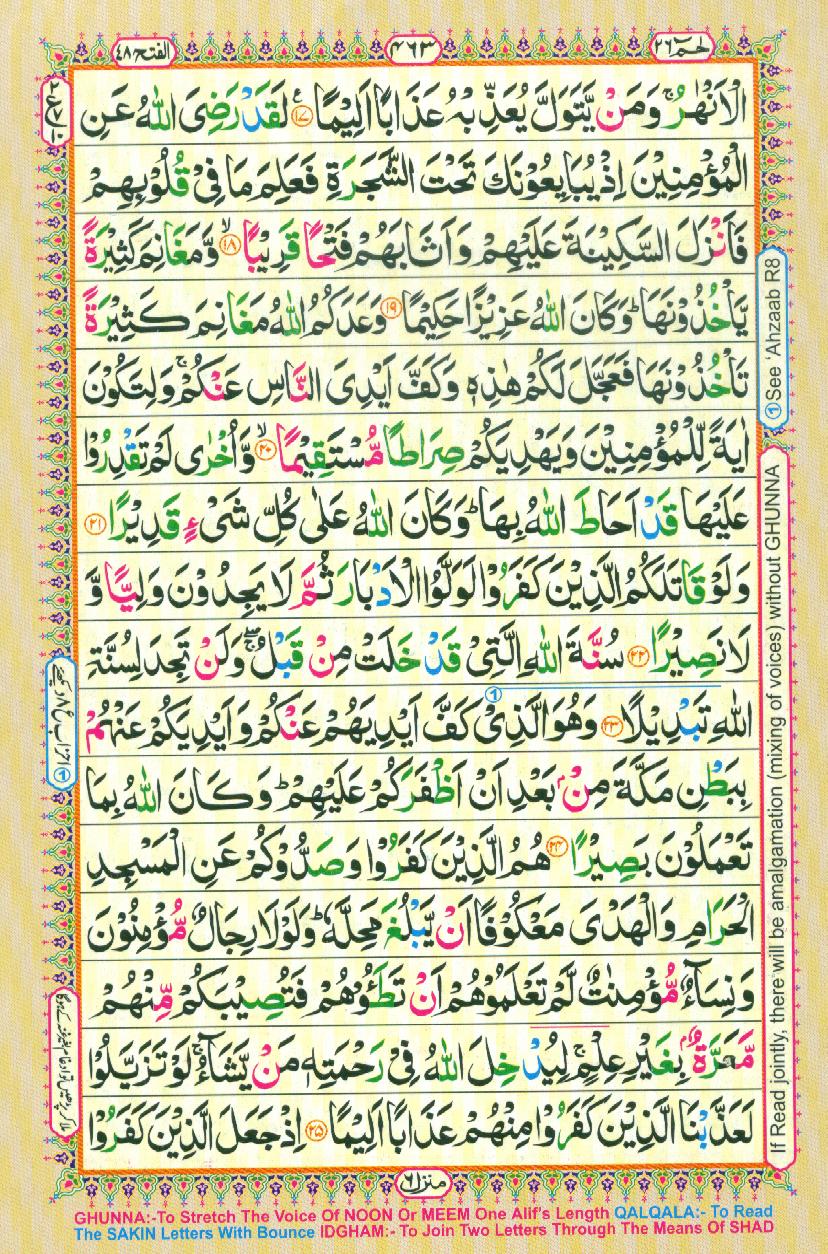 الفتح ٤٨
٤٦٣
حٰمٓ ٢٦
الْاَنْهٰرُ ۚ وَمَنْ يَّتَوَلَّ يُعَذِّبْهُ عَذَابًا اَلِيْمًا ﴿۱۷﴾ لَقَدْ رَضِىَ اللّٰهُ عَنِ
الْمُؤْمِنِيْنَ اِذْ يُبَايِعُوْنَكَ تَحْتَ الشَّجَرَةِ فَعَلِمَ مَا فِىْ قُلُوْبِهِمْ
فَاَنْزَلَ السَّكِيْنَةَ عَلَيْهِمْ وَاَثَابَهُمْ فَتْحًا قَرِيْبًا ﴿۱۸﴾ ۙ وَّمَغَانِمَ كَثِيْرَةً
يَّاْخُذُوْنَهَا ؕ وَكَانَ اللّٰهُ عَزِيْزًا حَكِيْمًا ﴿۱۹﴾ وَعَدَكُمُ اللّٰهُ مَغَانِمَ كَثِيْرَةً
تَاْخُذُوْنَهَا فَعَجَّلَ لَكُمْ هٰذِهٖ وَكَفَّ اَيْدِىَ النَّاسِ عَنْكُمْ ۚ وَلِتَكُوْنَ
اٰيَةً لِّلْمُؤْمِنِيْنَ وَيَهْدِيَكُمْ صِرَاطًا مُّسْتَقِيْمًا ﴿۲۰﴾ ۙ وَّاُخْرٰى لَمْ تَقْدِرُوْا
عَلَيْهَا قَدْ اَحَاطَ اللّٰهُ بِهَا ؕ وَكَانَ اللّٰهُ عَلٰى كُلِّ شَىْءٍ قَدِيْرًا ﴿۲۱﴾
وَلَوْ قَاتَلَكُمُ الَّذِيْنَ كَفَرُوْا لَوَلَّوُا الْاَدْبَارَ ثُمَّ لَا يَجِدُوْنَ وَلِيًّا وَّ
لَا نَصِيْرًا ﴿۲۲﴾ سُنَّةَ اللّٰهِ الَّتِىْ قَدْ خَلَتْ مِنْ قَبْلُ ۖۚ وَلَنْ تَجِدَ لِسُنَّةِ
اللّٰهِ تَبْدِيْلًا ﴿۲۳﴾ وَهُوَ الَّذِىْ كَفَّ اَيْدِيَهُمْ عَنْكُمْ وَاَيْدِيَكُمْ عَنْهُمْ
بِبَطْنِ مَكَّةَ مِنْۢ بَعْدِ اَنْ اَظْفَرَكُمْ عَلَيْهِمْ ؕ وَكَانَ اللّٰهُ بِمَا
تَعْمَلُوْنَ بَصِيْرًا ﴿۲۴﴾ هُمُ الَّذِيْنَ كَفَرُوْا وَصَدُّوْكُمْ عَنِ الْمَسْجِدِ
الْحَرَامِ وَالْهَدْىَ مَعْكُوْفًا اَنْ يَّبْلُغَ مَحِلَّهٗ ؕ وَلَوْلَا رِجَالٌ مُّؤْمِنُوْنَ
وَنِسَآءٌ مُّؤْمِنٰتٌ لَّمْ تَعْلَمُوْهُمْ اَنْ تَطَئُوْهُمْ فَتُصِيْبَكُمْ مِّنْهُمْ
مَّعَرَّةٌۢ بِغَيْرِ عِلْمٍ ۚ لِيُدْخِلَ اللّٰهُ فِىْ رَحْمَتِهٖ مَنْ يَّشَآءُ ۚ لَوْ تَزَيَّلُوْا
لَعَذَّبْنَا الَّذِيْنَ كَفَرُوْا مِنْهُمْ عَذَابًا اَلِيْمًا ﴿۲۵﴾ اِذْ جَعَلَ الَّذِيْنَ كَفَرُوْا
① See 'Ahzaab R8
If Read jointly, there will be amalgamation (mixing of voices) without GHUNNA
منزل ٦
GHUNNA:-To Stretch The Voice Of NOON Or MEEM One Alif's Length QALQALA:- To Read
The SAKIN Letters With Bounce IDGHAM:- To Join Two Letters Through The Means Of SHAD